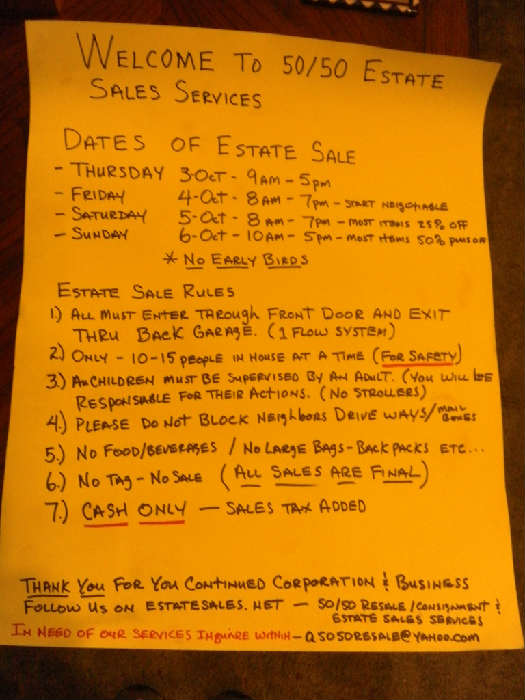 WELCOME TO 50/50 ESTATE
SALES SERVICES
DATES OF ESTATE SALE
- THURSDAY 3-OCT - 9AM - 5pm
- FRIDAY 4-OCT - 8AM - 7pm - START NEGOTIABLE
- SATURDAY 5-OCT - 8AM - 7pm - MOST ITEMS 25% OFF
- SUNDAY 6-OCT - 10AM - 5pm - MOST ITEMS 50% PLUS OFF
* NO EARLY BIRDS
ESTATE SALE RULES
1.) ALL MUST ENTER THROUGH FRONT DOOR AND EXIT
THRU BACK GARAGE. (1 FLOW SYSTEM)
2.) ONLY - 10-15 PEOPLE IN HOUSE AT A TIME (FOR SAFETY)
3.) All CHILDREN MUST BE SUPERVISED BY AN ADULT. (YOU WILL BE
RESPONSIABLE FOR THEIR ACTIONS. (NO STROLLERS)
4.) PLEASE DO NOT BLOCK NEIGHBORS DRIVE WAYS/MAIL BOXES
5.) NO FOOD/BEVERAGES / NO LARGE BAGS-BACKPACKS ETC...
6.) NO TAG - NO SALE (ALL SALES ARE FINAL)
7.) CASH ONLY - SALES TAX ADDED
THANK YOU FOR YOU CONTINUED CORPORATION & BUSINESS
FOLLOW US ON ESTATESALES.NET - 50/50 RESALE/CONSIGNMENT &
ESTATE SALES SERVICES
IN NEED OF OUR SERVICES INQUIRE WITHIN - Q5050RESALE@YAHOO.COM